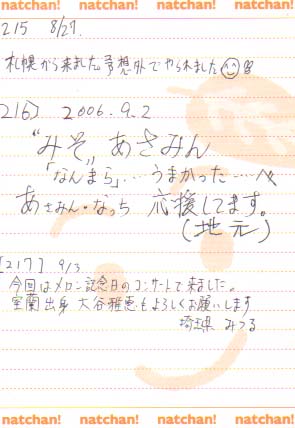 natchan! natchan! natchan! natchan!
215 8/27.
札幌から来ました予想外でやられました
216] 2006.9.2
"みそ„ あさみん
「なんまら」‥‥うまかった‥‥べ
あさみん・なっち 応援してます。
(地元)
[217] 9/3
今回はメロン記念日のコンサートで来ました。
室蘭出身 大谷雅恵もよろしくお願いします
埼玉県 みつる
natchan! natchan! natchan! natchan!